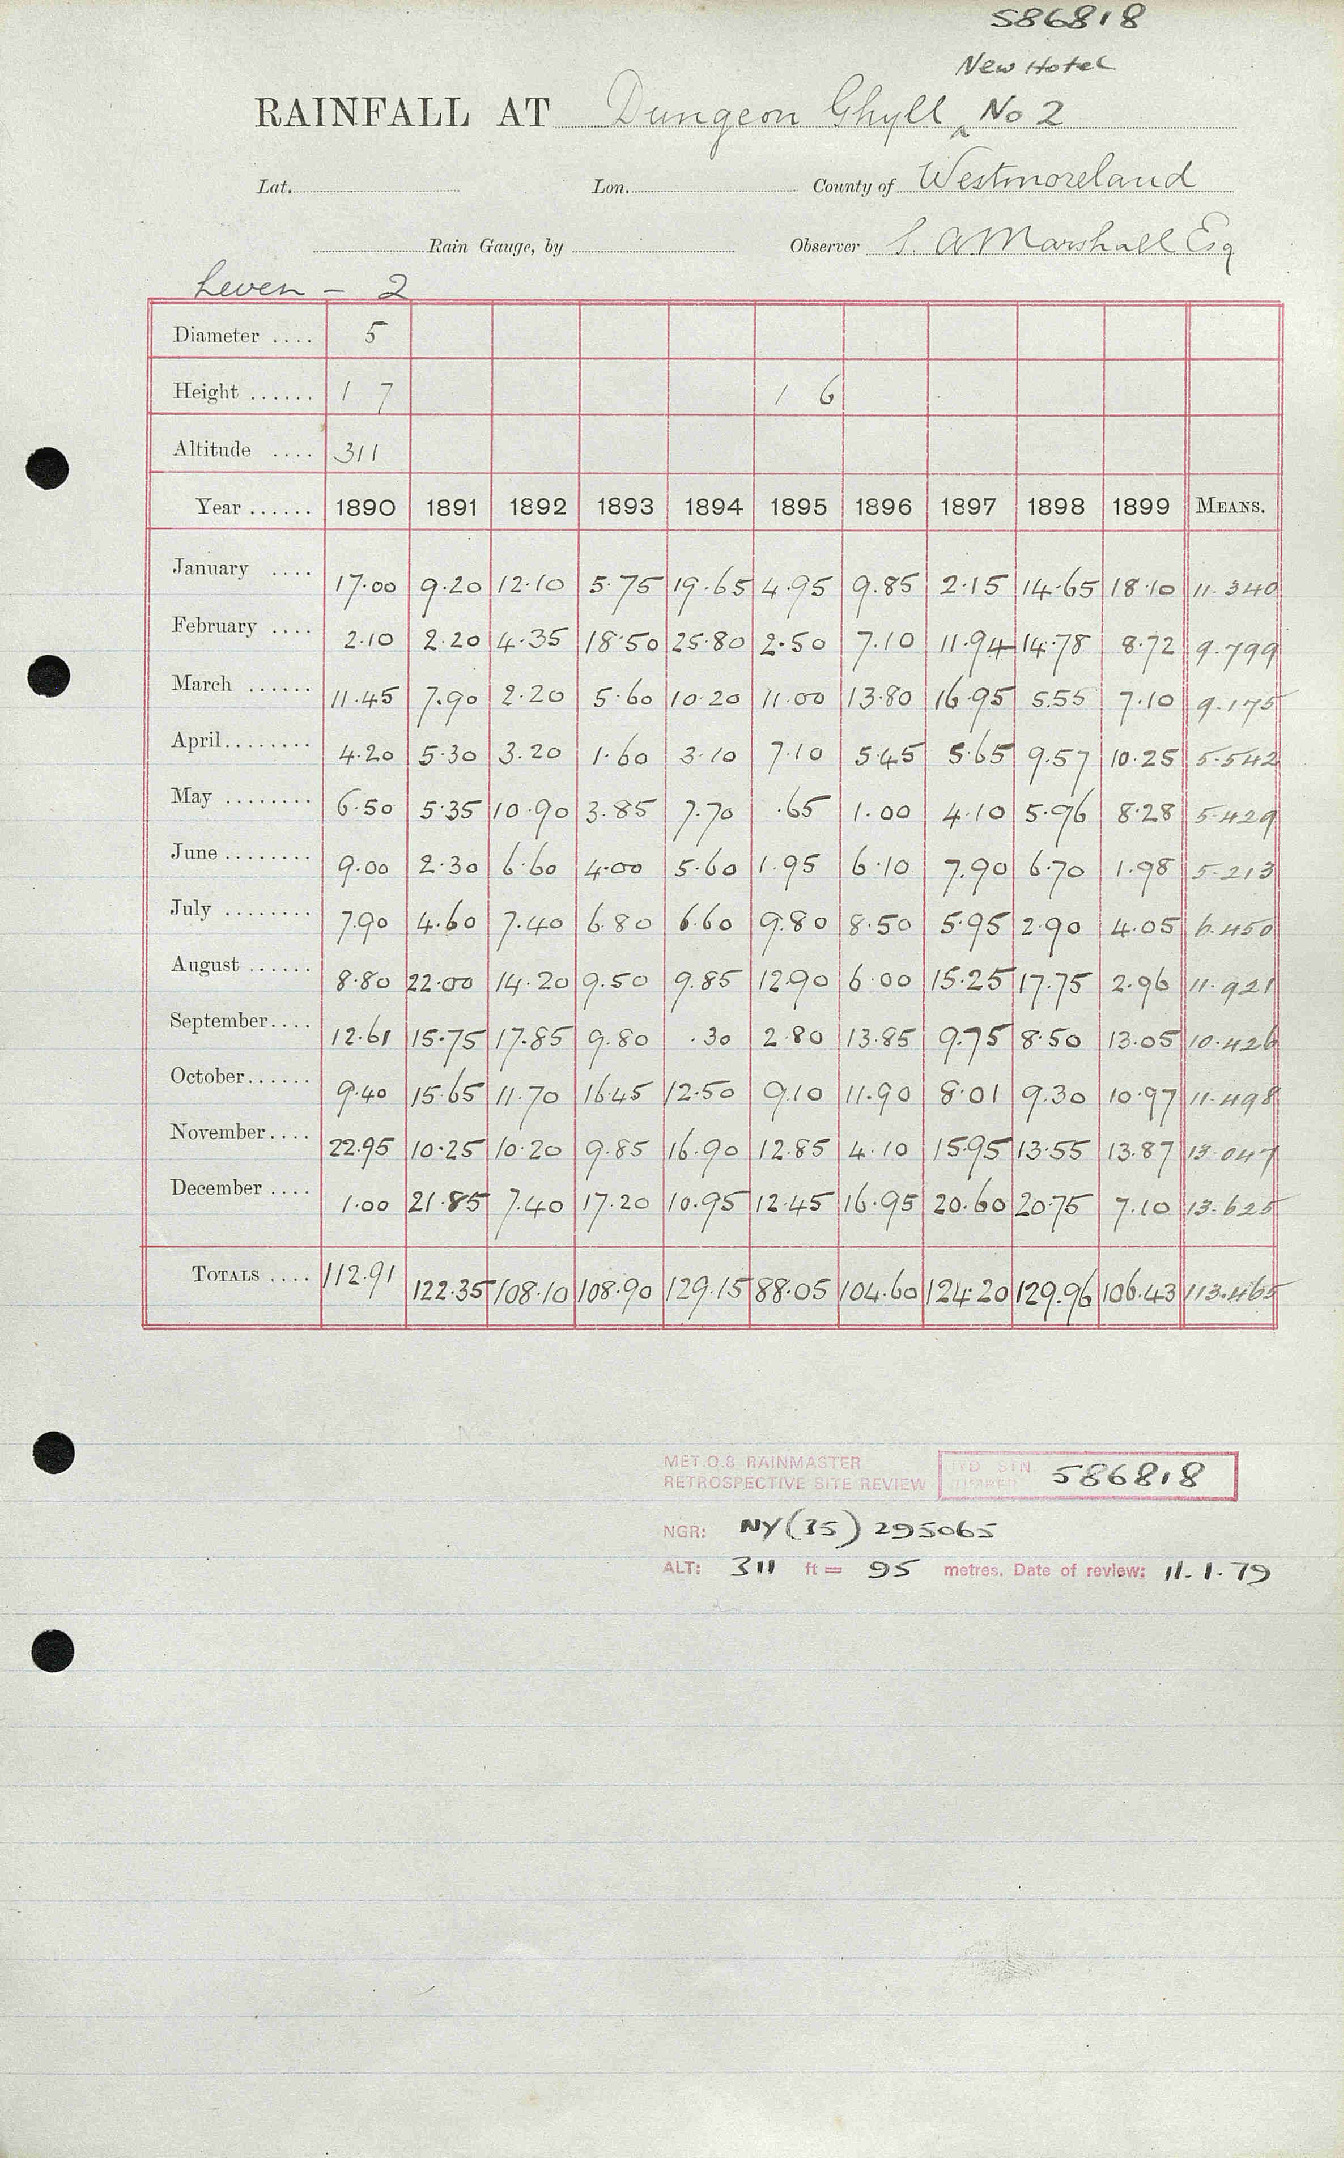 586818
New Hotel
RAINFALL AT Dungeon Ghyll ^ No 2
Lat. Lon. County of Westmoreland
Rain Gauge, by Observer S. A Marshall Esq
Leven - 2
Diameter .... 5
Height ...... 1 7 1 6
Altitude .... 311
Year ...... 1890 1891 1892 1893 1894 1895 1896 1897 1898 1899 MEANS.
January .... 17.00 9.20 12.10 5.75 19.65 4.95 9.85 2.15 14.65 18.10 11.340
February .... 2.10 2.20 4.35 18.50 25.80 2.50 7.10 11.94 14.78 8.72 9.799
March ...... 11.45 7.90 2.20 5.60 10.20 11.00 13.80 16.95 5.55 7.10 9.175
April........ 4.20 5.30 3.20 1.60 3.10 7.10 5.45 5.65 9.57 10.25 5.542
May ........ 6.50 5.35 10.90 3.85 7.70 .65 1.00 4.10 5.96 8.28 5.429
June ........ 9.00 2.30 6.60 4.00 5.60 1.95 6.10 7.90 6.70 1.98 5.213
July ........ 7.90 4.60 7.40 6.80 6.60 9.80 8.50 5.95 2.90 4.05 6.450
August ...... 8.80 22.00 14.20 9.50 9.85 12.90 6.00 15.25 17.75 2.96 11.921
September.... 12.61 15.75 17.85 9.80 .30 2.80 13.85 9.75 8.50 13.05 10.426
October...... 9.40 15.65 11.70 16.45 12.50 9.10 11.90 8.01 9.30 10.97 11.498
November.... 22.95 10.25 10.20 9.85 16.90 12.85 4.10 15.95 13.55 13.87 13.047
December .... 1.00 21.85 7.40 17.20 10.95 12.45 16.95 20.60 20.75 7.10 13.625
TOTALS .... 112.91 122.35 108.10 108.90 129.15 88.05 104.60 124.20 129.96 106.43 113.465
MET.O.8 RAINMASTER
RETROSPECTIVE SITE REVIEW HYD STN. NUMBER 586818
NGR: NY (35) 295065
ALT: 311 ft = 95 metres. Date of review: 11.1.79